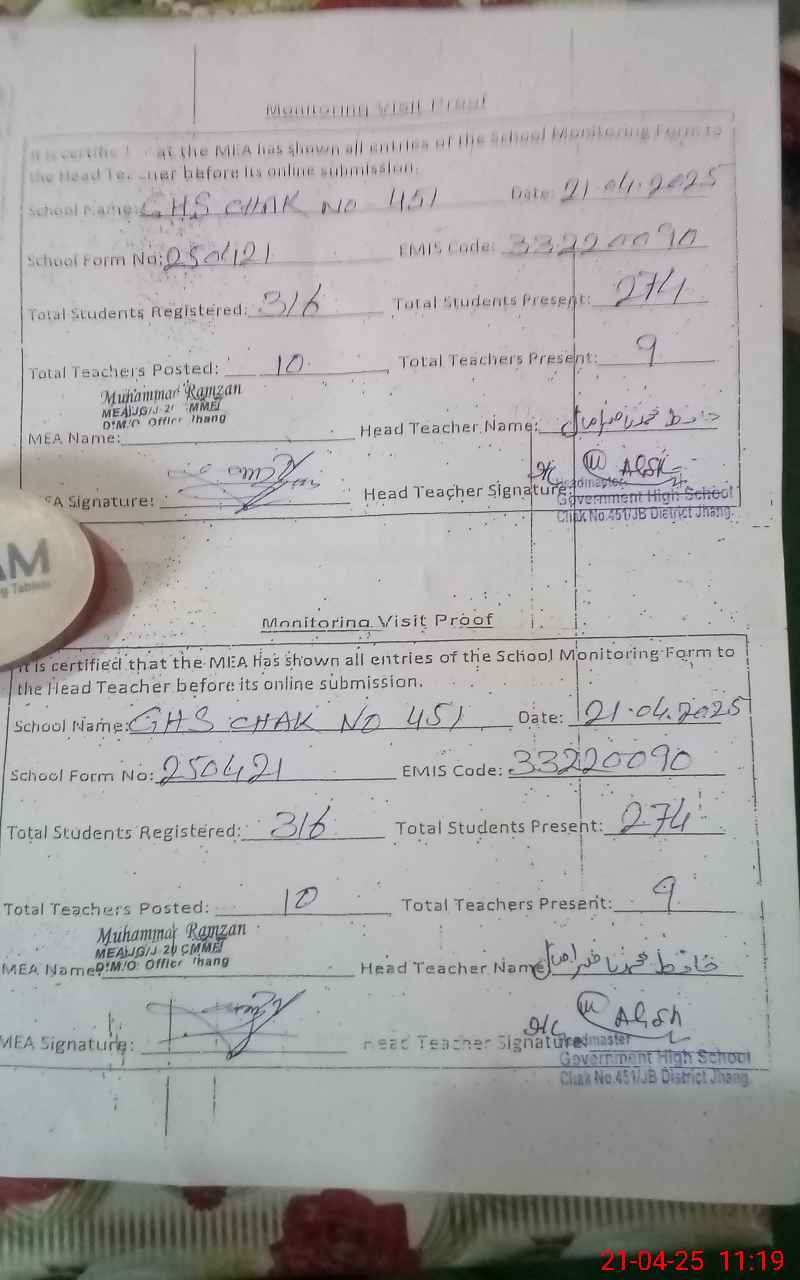 Monitoring Visit Proof
It is certified that the MEA has shown all entries of the School Monitoring Form to
the Head Teacher before its online submission.
School Name: GHS CHAK NO 451 Date: 21.04.2025
School Form No: 250421 EMIS Code: 33220090
Total Students Registered: 316 Total Students Present: 274
Total Teachers Posted: 10 Total Teachers Present: 9
Muhammad Ramzan
D.M.O Office Jhang
MEA Name: Head Teacher Name: حافظ محمد
EA Signature: Head Teacher Signature:
Headmaster
Government High School
Chak No.451/JB District Jhang.
AM
g Tablets
Monitoring Visit Proof
It is certified that the MEA has shown all entries of the School Monitoring Form to
the Head Teacher before its online submission.
School Name: GHS CHAK NO 451 Date: 21.04.2025
School Form No: 250421 EMIS Code: 33220090
Total Students Registered: 316 Total Students Present: 274
Total Teachers Posted: 10 Total Teachers Present: 9
Muhammad Ramzan
D.M.O Office Jhang
MEA Name: Head Teacher Name: حافظ محمد
MEA Signature: Head Teacher Signature:
Headmaster
Government High School
Chak No.451/JB District Jhang.
21-04-25 11:19